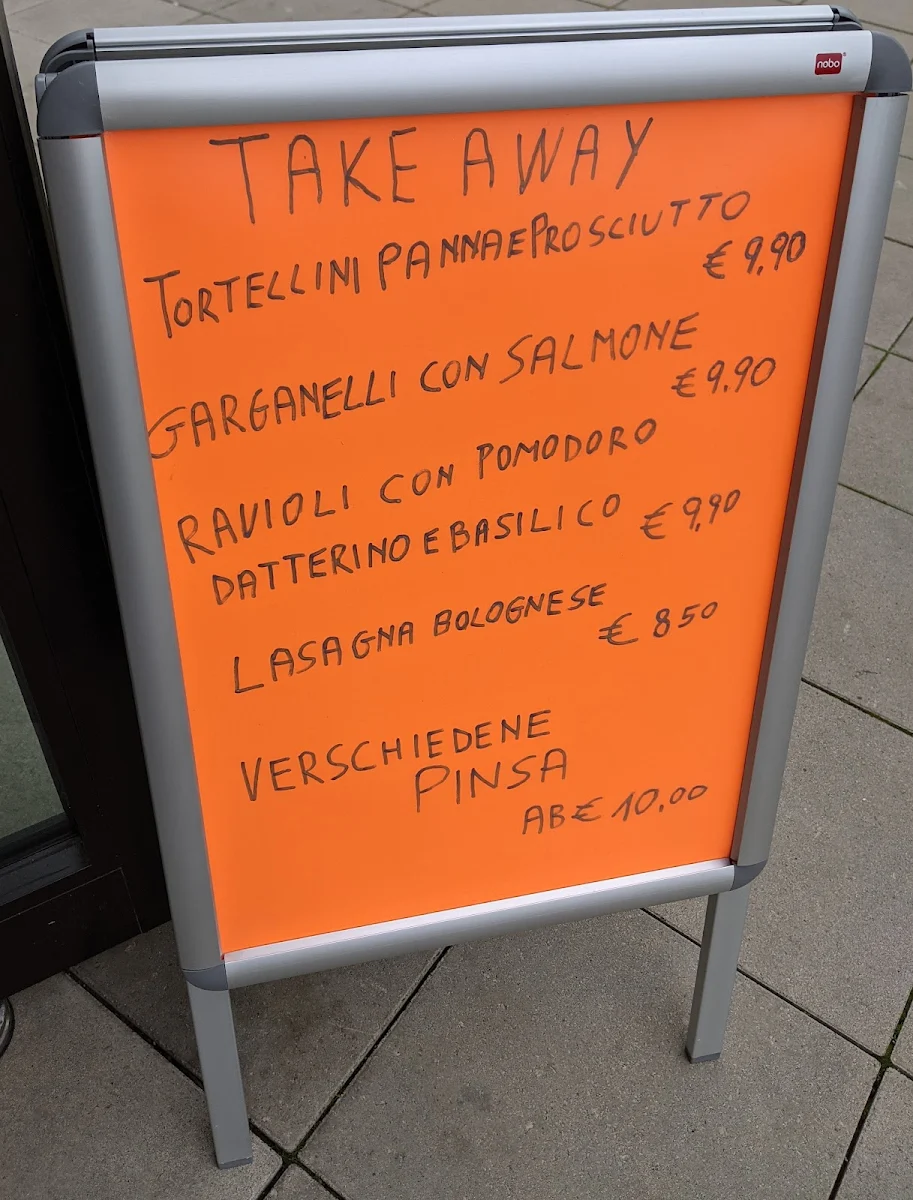 nobo
TAKE AWAY
TORTELLINI PANNA E PROSCIUTTO
€ 9,90
GARGANELLI CON SALMONE
€ 9.90
RAVIOLI CON POMODORO
DATTERINO E BASILICO € 9,90
LASAGNA BOLOGNESE
€ 850
VERSCHIEDENE
PINSA
AB € 10.00